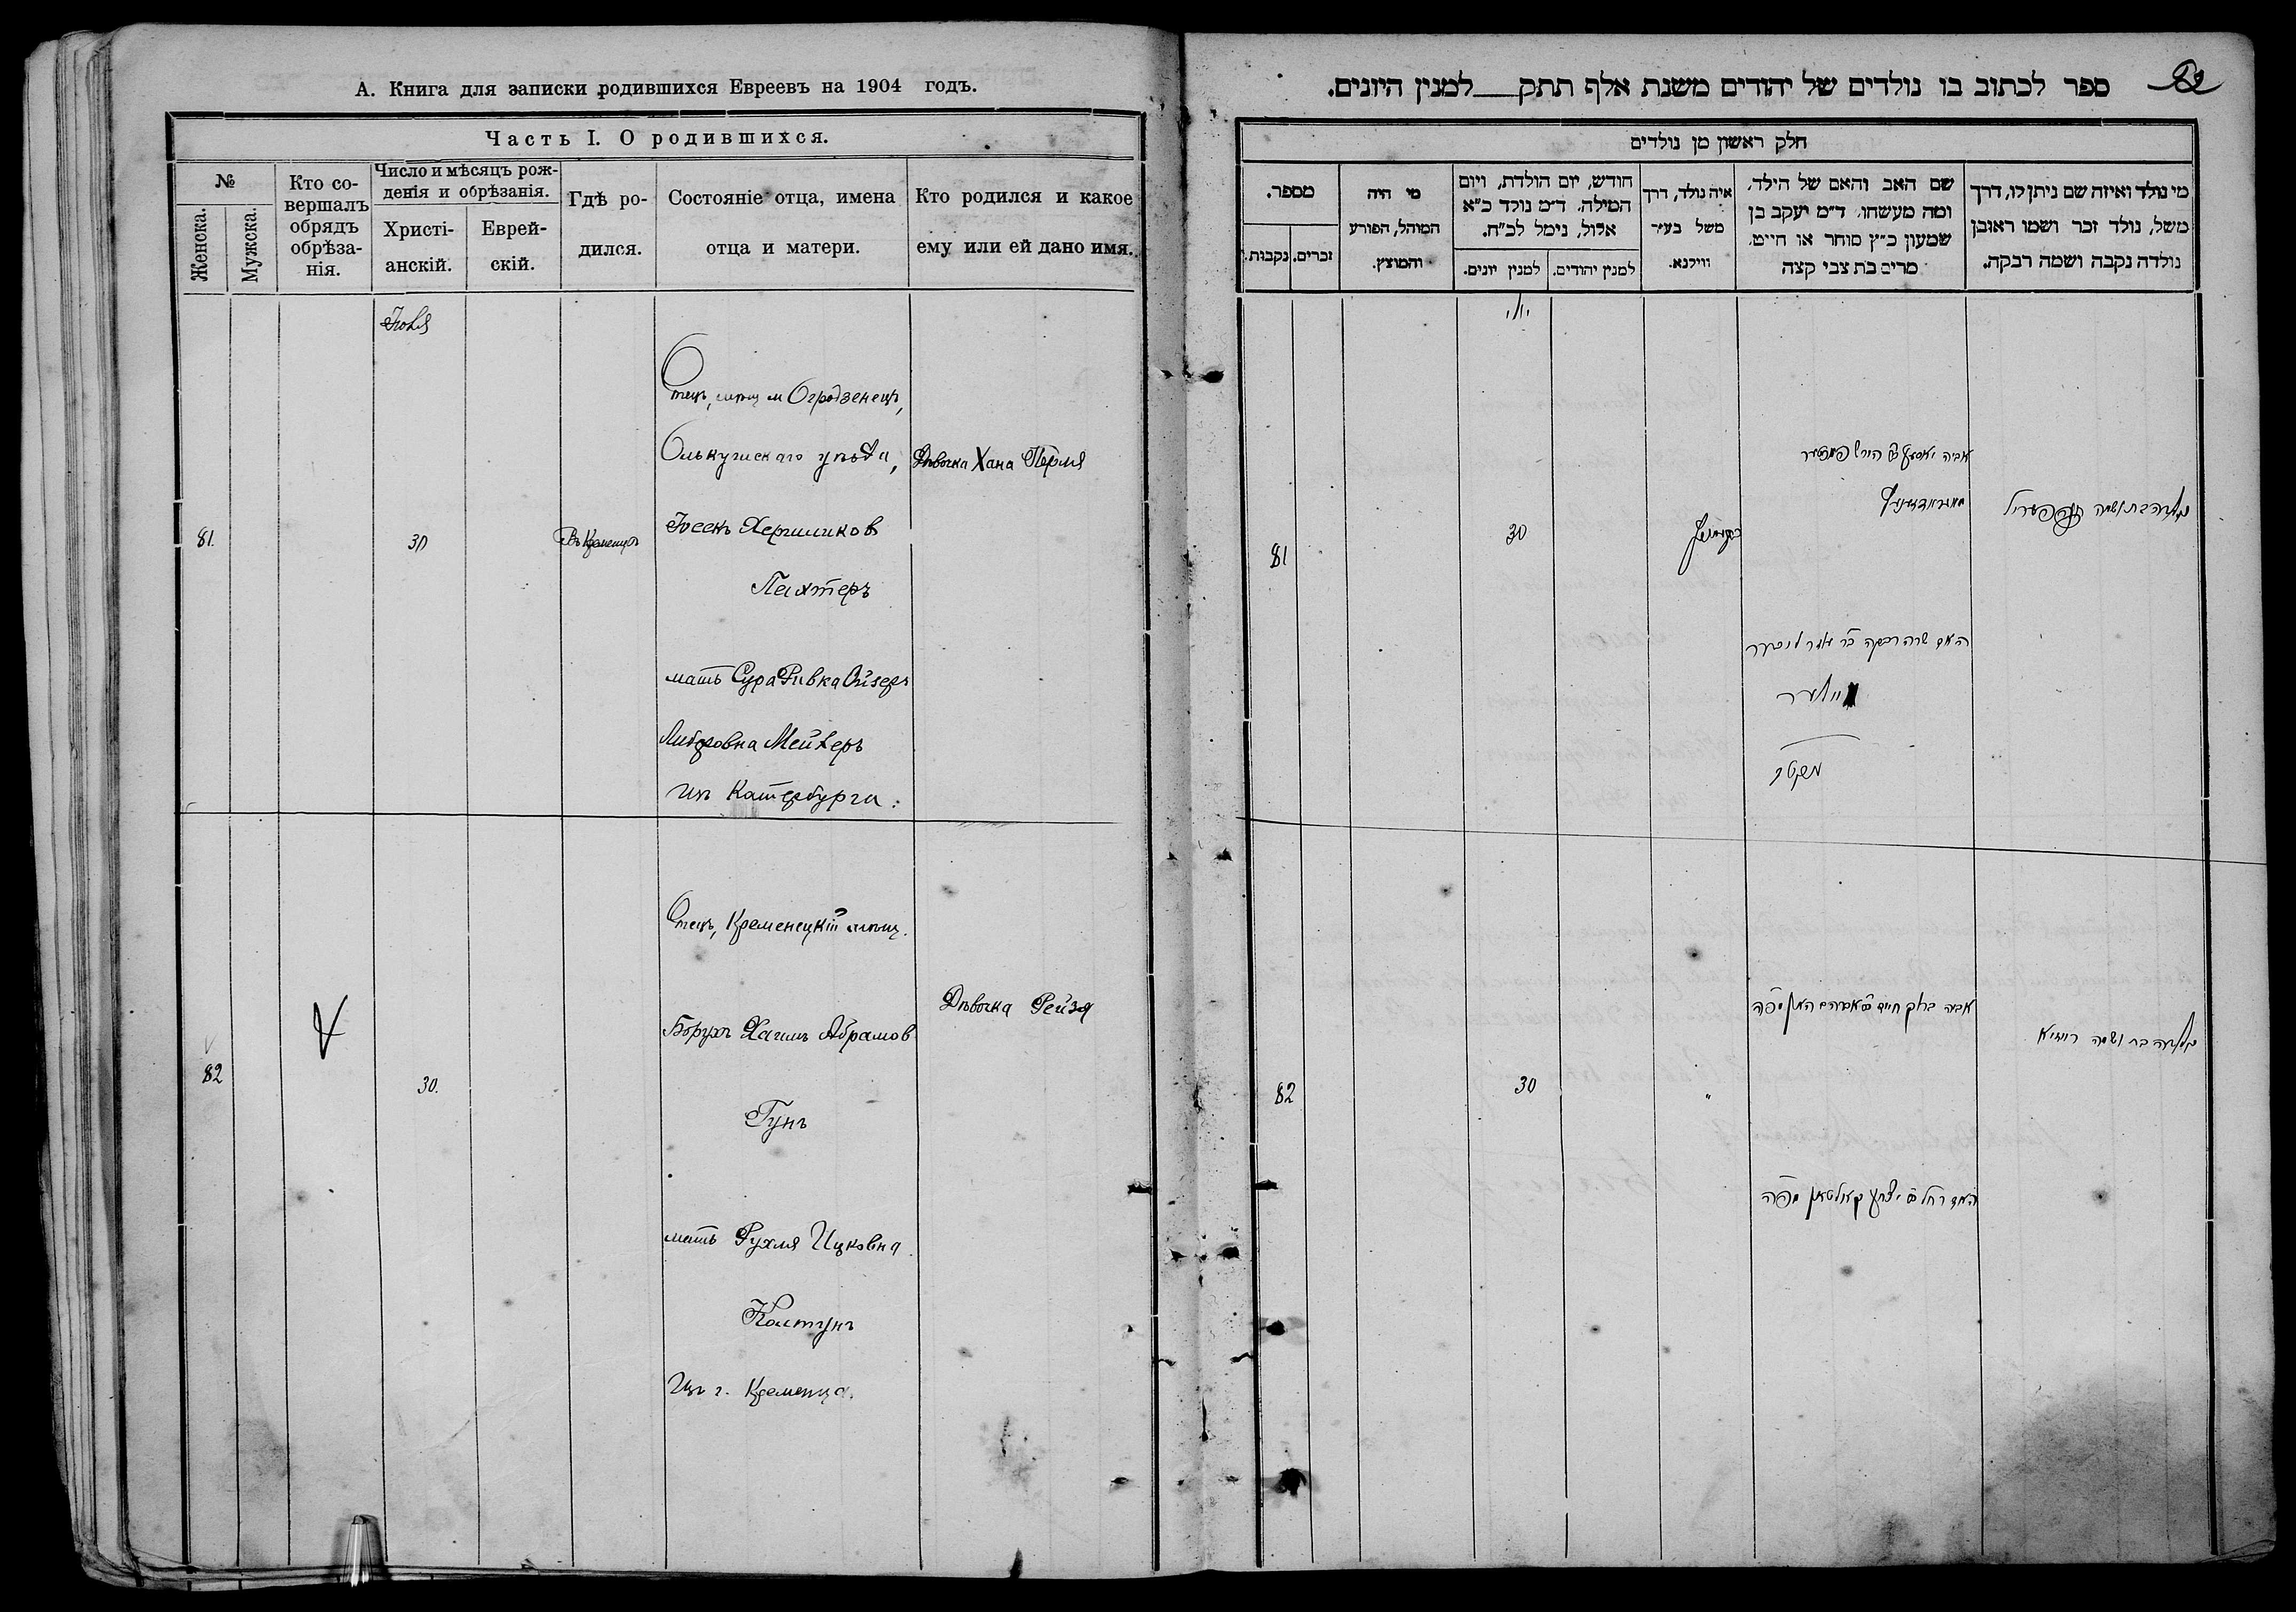 А. Книга для записки родившихся Евреевъ на 1904 годъ.
Часть I. О родившихся.
№
Женска.
Мужска.
Кто совершалъ обрядъ обрѣзанія.
Число и мѣсяцъ рожденія и обрѣзанія.
Христіанскій.
Еврейскій.
Гдѣ родился.
Состояніе отца, имена отца и матери.
Кто родился и какое ему или ей дано имя.
Юля
81.
30
Въ Кременцѣ
Отецъ, мѣщ м Огродзенецъ,
Олькушскаго уѣзда,
Іосекъ Хершликов
Пахтеръ
мать Сура Ривка Ойзеръ
Либеровна Мейлеръ
Изъ Катербурга.
Дѣвочка Хана Перля
82
30.
Отецъ, Кременецкій мѣщ.
Борухъ Хаимъ Абрамов
Гунъ
мать Рухля Ицковна
Колтунъ
Изъ г. Кременца.
Дѣвочка Рейзя
82
ספר לכתוב בו נולדים של יהודים משנת אלף תתק למנין היונים.
חלק ראשון מן נולדים
מי נולד ואיזה שם ניתן לו, דרך
משל, נולד זכר ושמו ראובן
נולדה נקבה ושמה רבקה.
שם האב והאם של הילד,
ומה מעשהו, ד״מ יעקב בן
שמעון כ״ץ סוחר או חייט,
מרים בת צבי קצה
איה נולד, דרך
משל בעיר
ווילנא.
חודש, יום הולדת, ויום
המילה, ד״מ נולד כ״א
אלול, נימל לכ״ח.
למנין יהודים.
למנין יונים.
מי היה
המוהל, הפורע
והמוצץ.
מספר.
זכרים.
נקבות.
יולי
נולדה בת ושמה חנה פעריל
אביה יאסעק ב״ר הירש פאכטער
האם שרה רבקה ב״ר
מיילער
30
81
נולדה בת ושמה רייזיא
אביה ברוך חיים ב״ר אברהם
האם רחל ב״ר יצחק קאלטאן
"
30
82